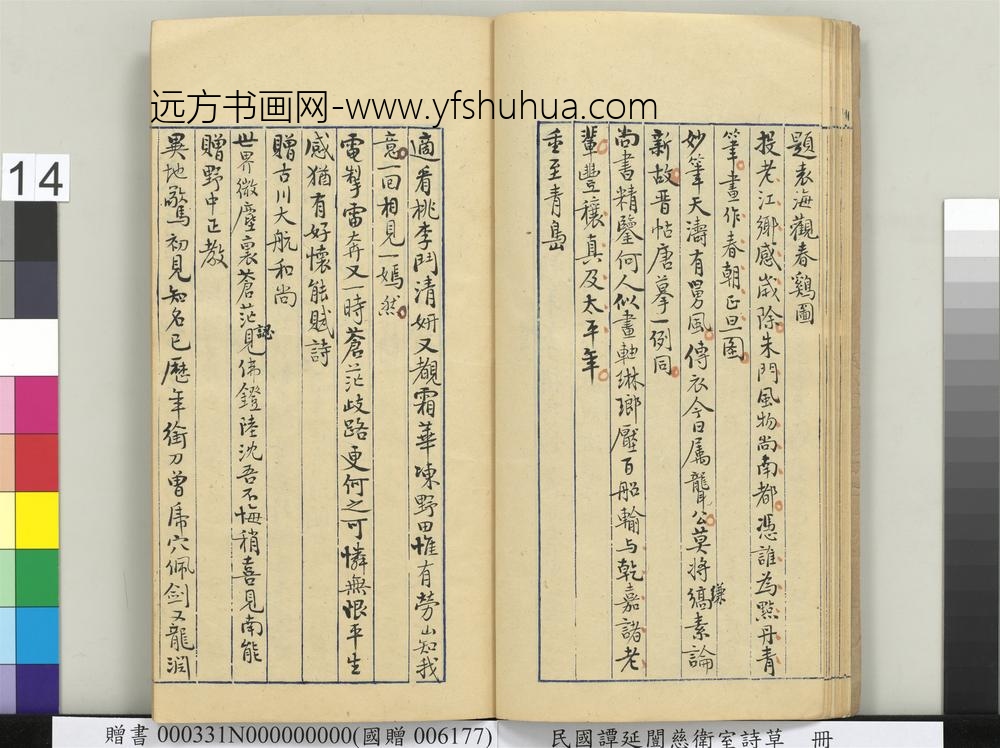 远方书画网-www.yfshuhua.com
題袁海觀春鷄圖
投老江鄉感歲除朱門風物尚南都憑誰為點丹青
筆畫作春朝正旦圖
妙筆天濤有舅風傳衣今日屬聾公莫將縞素論
縑
新故晋帖唐摹一例同
尚書精鑒何人似畫軸琳瑯壓百船輸与乾嘉諸老
輩豐穰真及太平年
重至青島
適看桃李鬥清妍又覩霜華凍野田惟有勞山知我
意一回相見一嫣然
電掣雷奔又一時蒼茫歧路更何之可憐無恨平生
感猶有好懷能賦詩
贈古川大航和尚
世界微塵裏蒼茫見佛鐙陸沈吾不悔稍喜見南能
認
贈野中正教
異地驚初見知名已歷年銜刀曾虎穴佩剑又龍淵
14
贈書 000331N000000000(國贈 006177)
民國譚延闓慈衛室詩草 冊